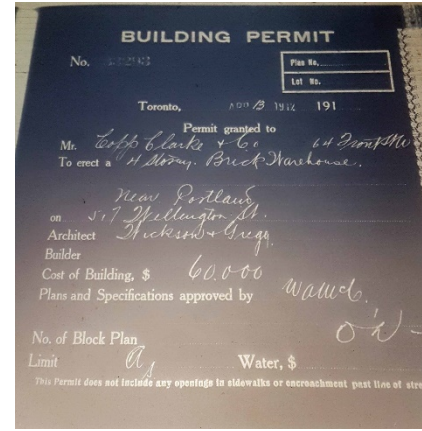 BUILDING PERMIT
No.
Plan No.
Lot No.
Toronto, 13 1912 191
Permit granted to
Mr. Copp Clarke & Co. 64 Front St W
To erect a 4 storey Brick Warehouse.
near Portland
on 517 Wellington St.
Architect Wickson & Gregg
Builder
Cost of Building, $ 60.000
Plans and Specifications approved by
No. of Block Plan
Limit A Water, $
This Permit does not include any openings in sidewalks or encroachment past line of stre